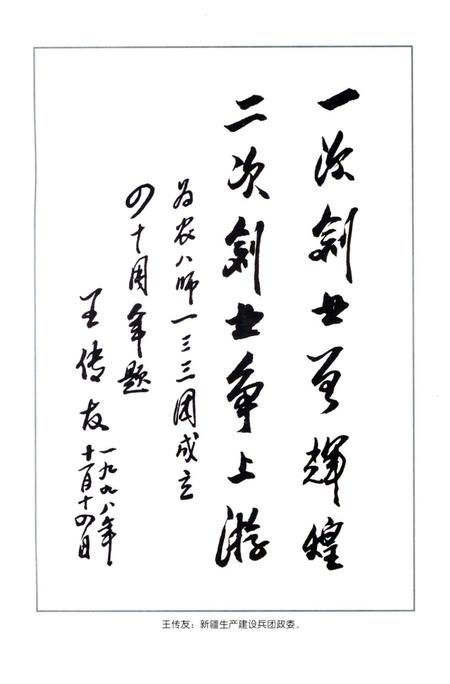 一次创业多辉煌
二次创业争上游
为农八师一三三团成立
四十周年题
王传友
一九九八年
十一月十四日
王传友：新疆生产建设兵团政委。